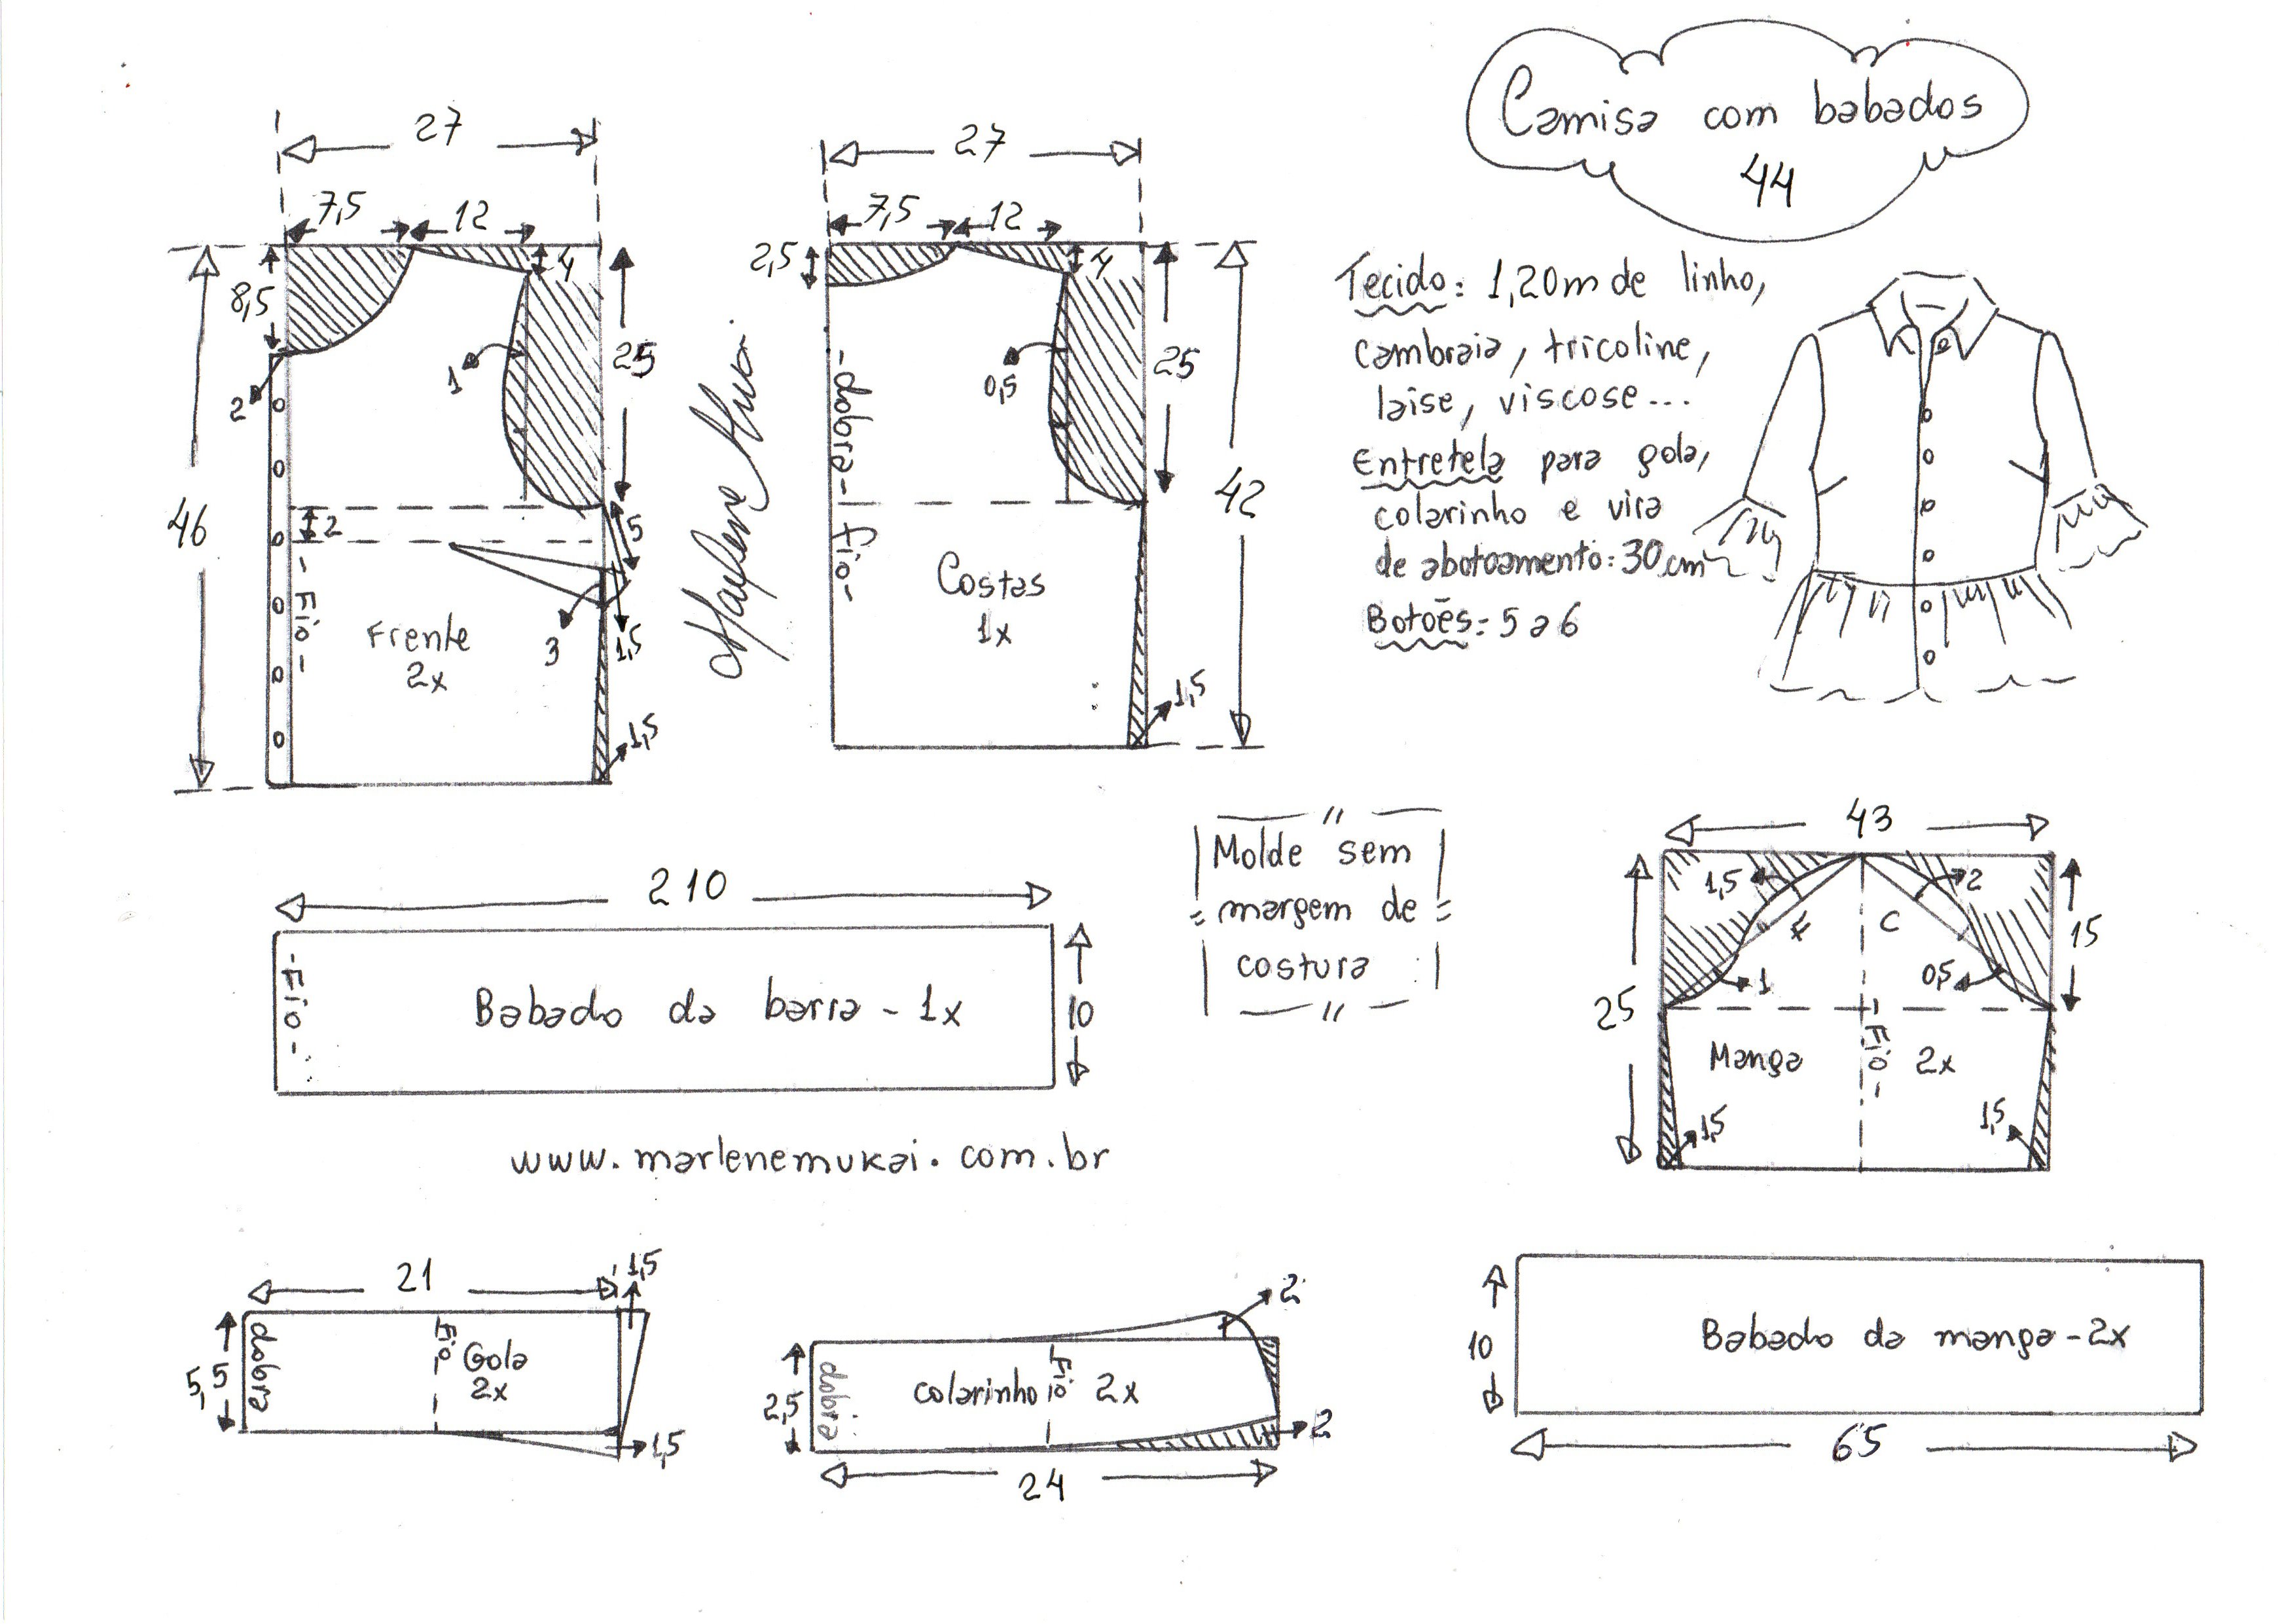 Camisa com babados
44
27
7,5
12
4
8,5
2
1
25
46
2
5
3
1,5
1,5
- Fio -
Frente
2x
Marlene Mukai
27
7,5
12
2,5
4
0,5
25
42
- dobra -
fio -
Costas
1x
1,5
Tecido: 1,20m de linho,
cambraia, tricoline,
laise, viscose...
Entretela para gola,
colarinho e vira
de abotoamento: 30 cm
Botões: 5 a 6
210
- Fio -
Babado da barra - 1x
10
Molde sem
margem de
costura
43
1,5
2
F
C
15
1
0,5
25
Manga
- Fio -
2x
1,5
1,5
www.marlenemukai.com.br
21
1,5
5,5
dobra
Fio
Gola
2x
1,5
2
2,5
dobra
colarinho
Fio
2x
2
24
10
Babado da manga - 2x
65